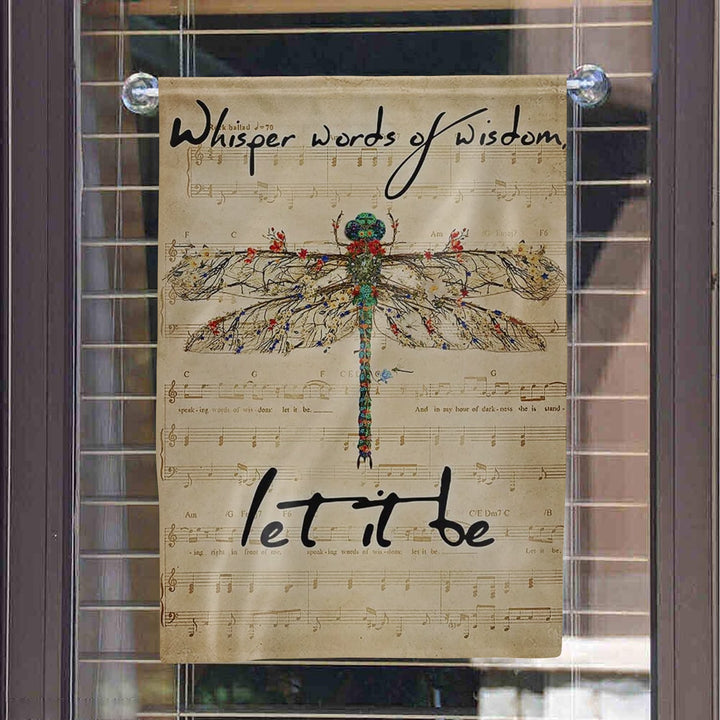 Whisper words of wisdom,
Rock ballad ♩=70
F C Am /G Fmaj7 F6
C G F C G
speak-ing words of wis-dom: let it be. And in my hour of dark-ness she is stand-
let it be
Am /G F C/E Dm7 C /B
-ing right in front of me, speak-ing words of wis-dom: let it be. Let it be.